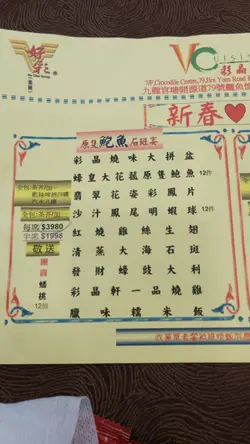 好彩
VC
uisi
彩晶
7/F, Crocodile Centre, 79, Hoi Yuen Road
九龍官塘開源道79號鱷魚恤
新春
原隻鮑魚石班宴
彩晶燒味大拼盆
蠔皇大花菇原隻鮑魚 12件
翡翠花姿彩鳳片
沙汁鳳尾明蝦球 12件
紅燒雞絲生翅
清蒸大海石斑
發財蠔豉大利
彩晶軒一品燒雞
臘味糯米飯
全包:茶芥
汽水八罐
全包:茶芥
每席 $3980
半席 $1998
敬送
蟠桃
12個